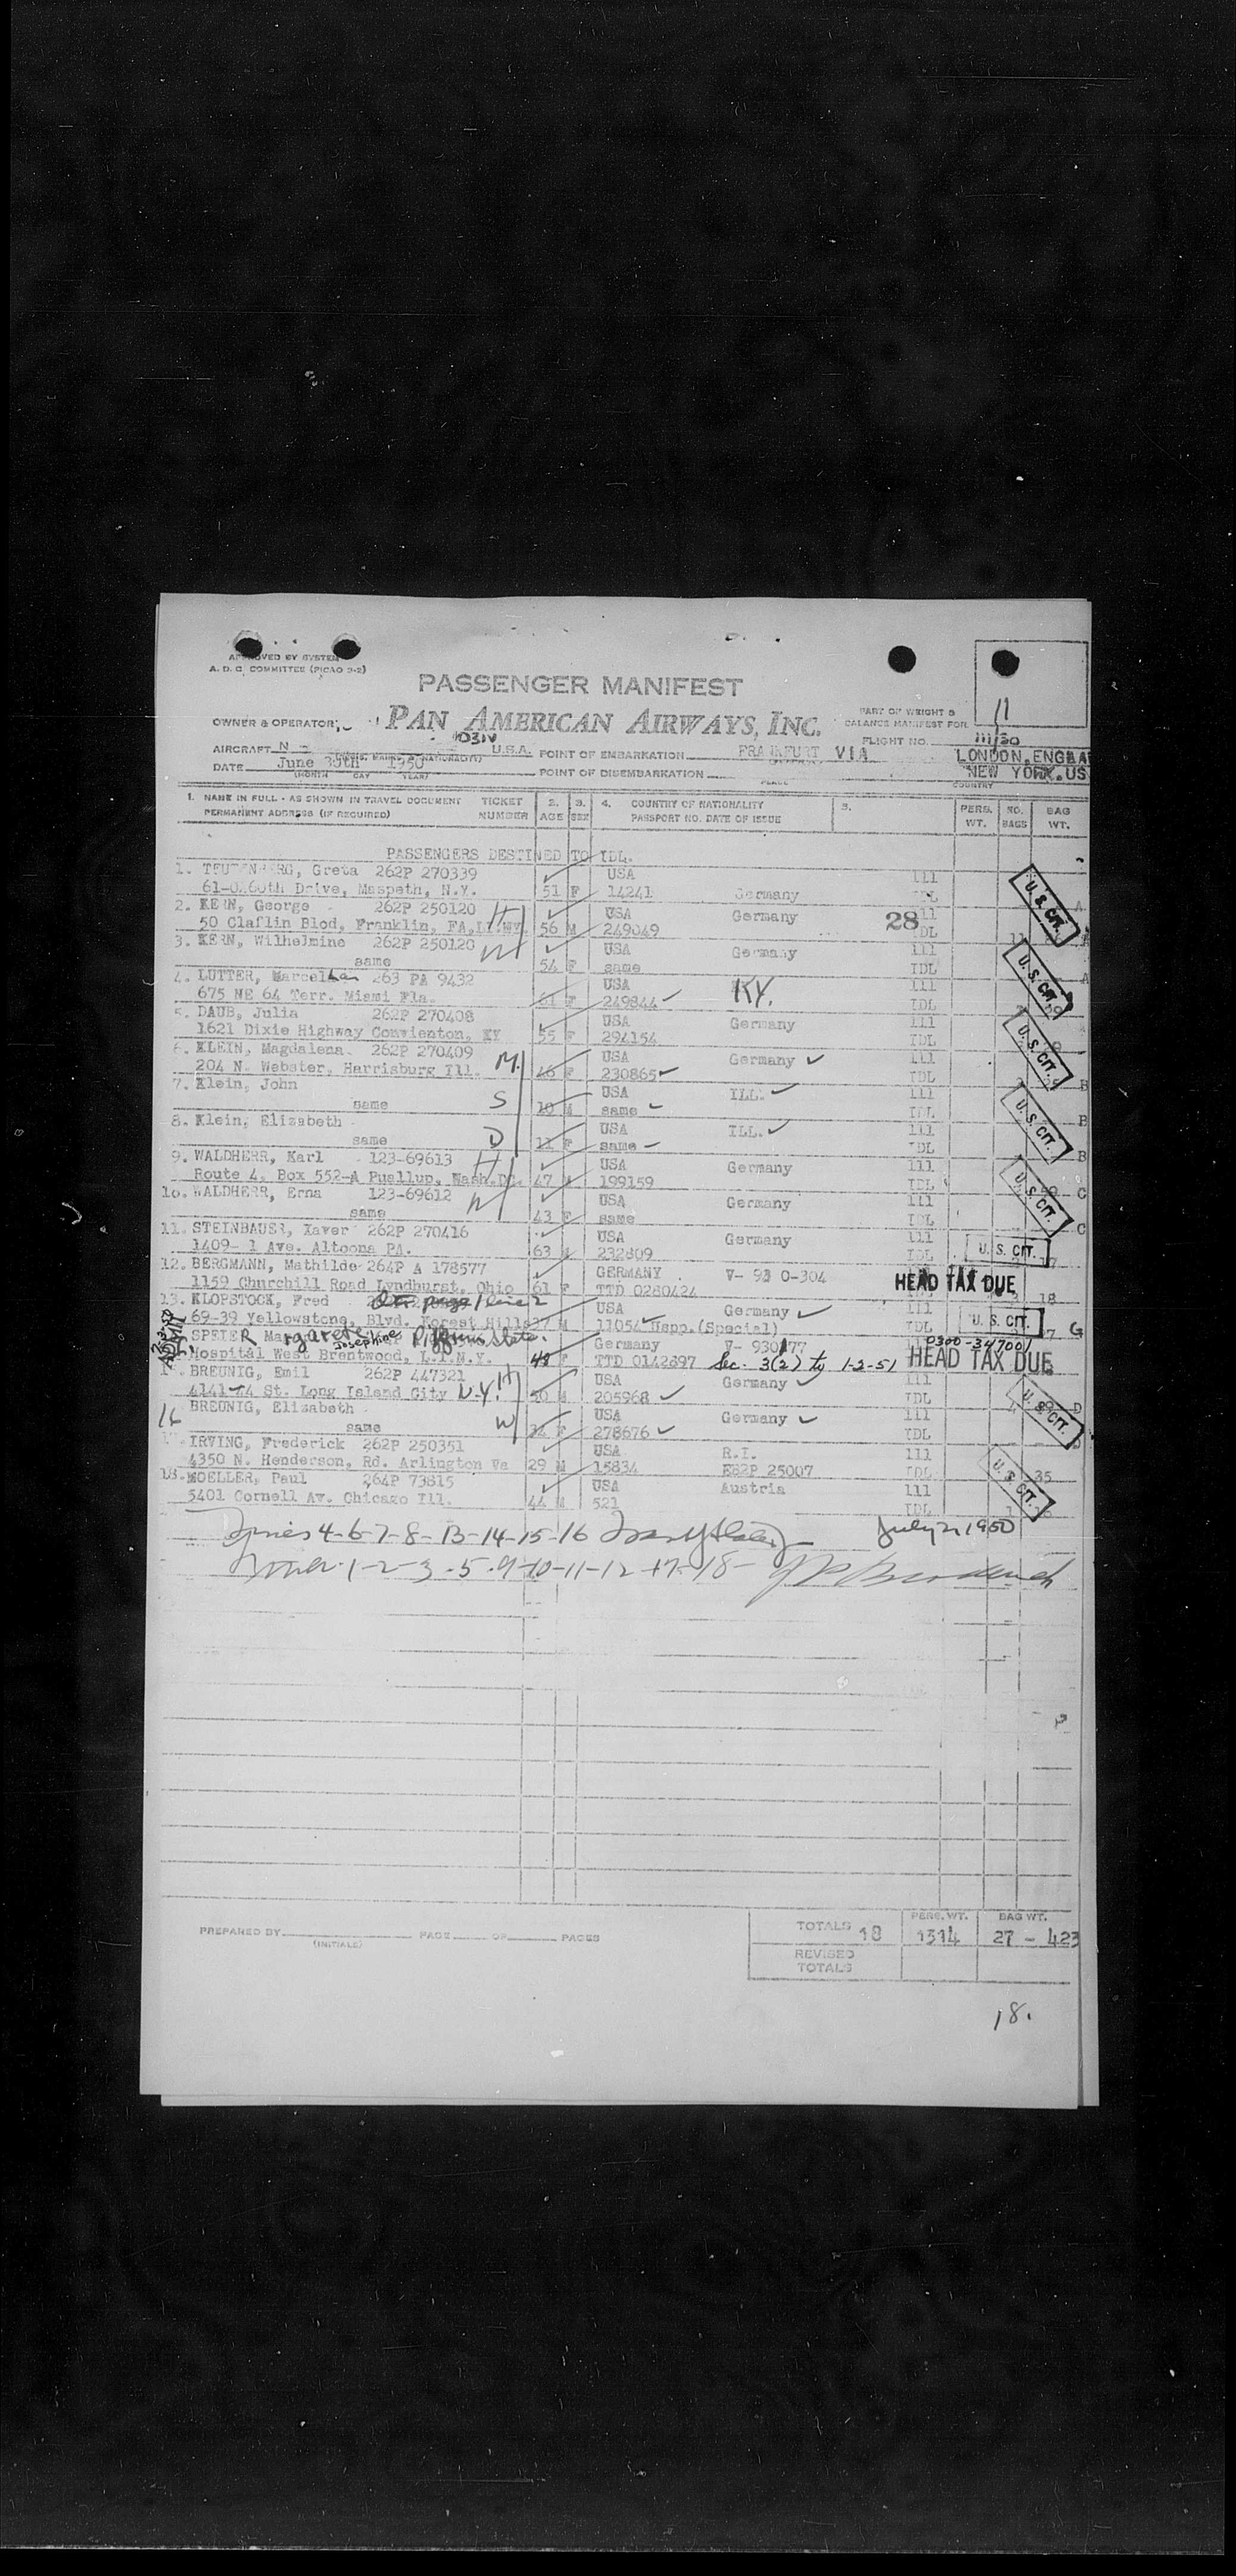 APPROVED BY SYSTEM
A. D. C. COMMITTEE (PICAO 9-2)
PASSENGER MANIFEST
11
OWNER & OPERATOR
PAN AMERICAN AIRWAYS, INC.
PART OF WEIGHT & BALANCE MANIFEST FOR
FLIGHT NO. 111/30
AIRCRAFT N 1031V U.S.A. POINT OF EMBARKATION FRANKFURT VIA LONDON, ENGLA
DATE June 30th 1950 POINT OF DISEMBARKATION NEW YORK, US
(MONTH DAY YEAR) PLACE COUNTRY
1. NAME IN FULL - AS SHOWN IN TRAVEL DOCUMENT TICKET 2. 3. 4. COUNTRY OF NATIONALITY 5. PERS. NO. BAG
PERMANENT ADDRESS (IF REQUIRED) NUMBER AGE SEX PASSPORT NO. DATE OF ISSUE WT. BAGS WT.
PASSENGERS DESTINED TO IDL.
1. TEUTENBERG, Greta 262P 270339 USA 111
Drive, Maspeth, N.Y. 51 F 14241 Germany U. S. CIT.
2. KERN, George 262P 250120 H USA Germany 28 111 A
50 Claflin Blod, Franklin, 56 M 249049 IDL 11
3. KERN, Wilhelmine 262P 250120 W USA Germany 111
same 54 F same IDL U. S. CIT. A
4. LUTTER, 263 PA 9432 USA KY. 111
675 NE 64 Terr. Miami Fla. F 249844 IDL
5. DAUB, Julia 262P 270408 USA Germany 111
1621 Dixie Highway Convienton, KY 55 F 294154 IDL U. S. CIT.
6. KLEIN, Magdalena 262P 270409 M USA Germany 111
204 N. Webster, Harrisburg Ill. 46 F 230865 IDL B
7. Klein, John S USA ILL. 111
same 10 M same IDL U. S. CIT. B
8. Klein, Elizabeth USA ILL. 111
same D F same IDL B
9. WALDHERR, Karl 123-69613 H USA Germany 111
Route 4, Box 552-A Puallup, 47 M 199159 IDL U. S. CIT. C
10. WALDHERR, Erna 123-69612 W USA Germany 111
same 43 F same IDL C
11. STEINBAUER, Xaver 262P 270416 USA Germany 111
1409- 1 Ave. Altoona PA. 63 M 232809 IDL U. S. CIT.
12. BERGMANN, Mathilde 264P A 178577 GERMANY V- 93 0-304
1159 Churchill Road Lyndhurst, Ohio 61 F TTD 0280424 HEAD TAX DUE 18
13. KLOPSTOCK, Fred page 1 line 2 USA Germany 111
69-39 Yellowstone, Blvd. Forest Hills 37 M 11054 Uspp.(Special) IDL U. S. CIT. G
SPEIER Margarete Josephine Pilgrim State. Germany V- 930177 0300-347001
Hospital West Brentwood, L.I.N.Y. 48 F TTD 0142897 Sec. 3(2) to 1-2-51 HEAD TAX DUE
BREUNIG, Emil 262P 447321 H USA Germany 111
4141-74 St. Long Island City N.Y. 50 M 205968 IDL D
16 BREUNIG, Elizabeth USA Germany 111 U. S. CIT.
same W F 278676 IDL D
IRVING, Frederick 262P 250351 USA R.I. 111
4350 N. Henderson, Rd. Arlington Va 29 M 15834 E82P 25007 IDL 35
18. MOELLER, Paul 264P 73815 USA Austria 111 U. S. CIT.
5401 Cornell Av. Chicago Ill. 44 M 521 IDL
4-6-7-8-13-14-15-16 July 2, 1950
1-2-3-5-9-10-11-12-17-18-
PREPARED BY (INITIALS) PAGE OF PAGES
TOTALS 18 PERS. WT. 1314 BAG WT. 27 - 423
REVISED TOTALS
18.